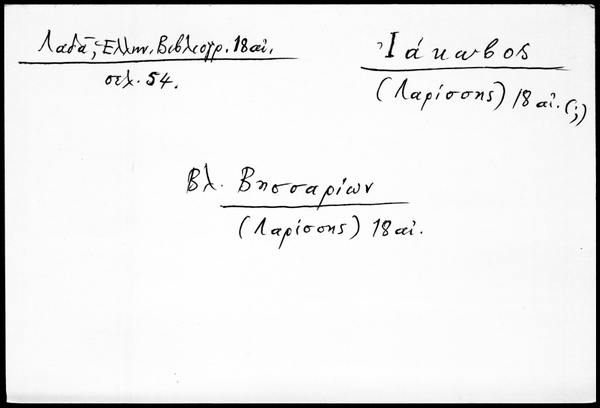 Λαδᾶ, Ἑλλην. Βιβλιογρ. 18 αἰ.
σελ. 54.
Ἰάκωβος
(Λαρίσσης) 18 αἰ. (;)
Βλ. Βησσαρίων
(Λαρίσσης) 18 αἰ.